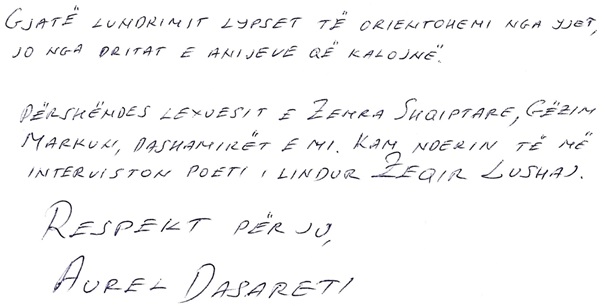 GJATË LUNDRIMIT LYPSET TË ORIENTOHEMI NGA YJET,
JO NGA DRITAT E ANIJEVE QË KALOJNË.
PËRSHËNDES LEXUESIT E ZEMRA SHQIPTARE, GËZIM
MARKUN, DASHAMIRËT E MI. KAM NDERIN TË MË
INTERVISTON POETI I LINDUR ZEQIR LUSHAJ.
RESPEKT PËR JU,
AUREL DASARETI